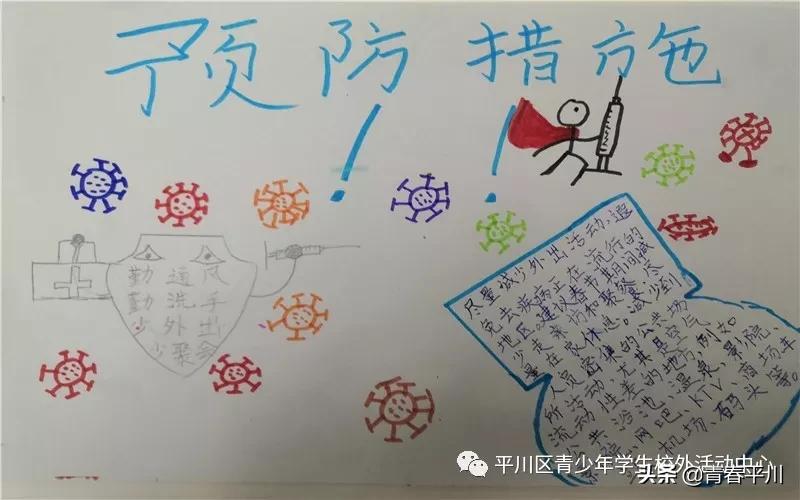 预防措施
!!
勤通风
勤洗手
少外出
少聚会
尽量减少外出活动、避
免去疾病正在流行的
地区。建议春节期间减
少走亲访和聚餐,尽
量在家休息。减少到
人员密集的公共场
所活动,尤其是空气
流动性差的地方例如
公共浴池、温泉、影院、
网吧、KTV、商场车
机场、码头等。
平川区青少年学生校外活动中心
头条@青春平川